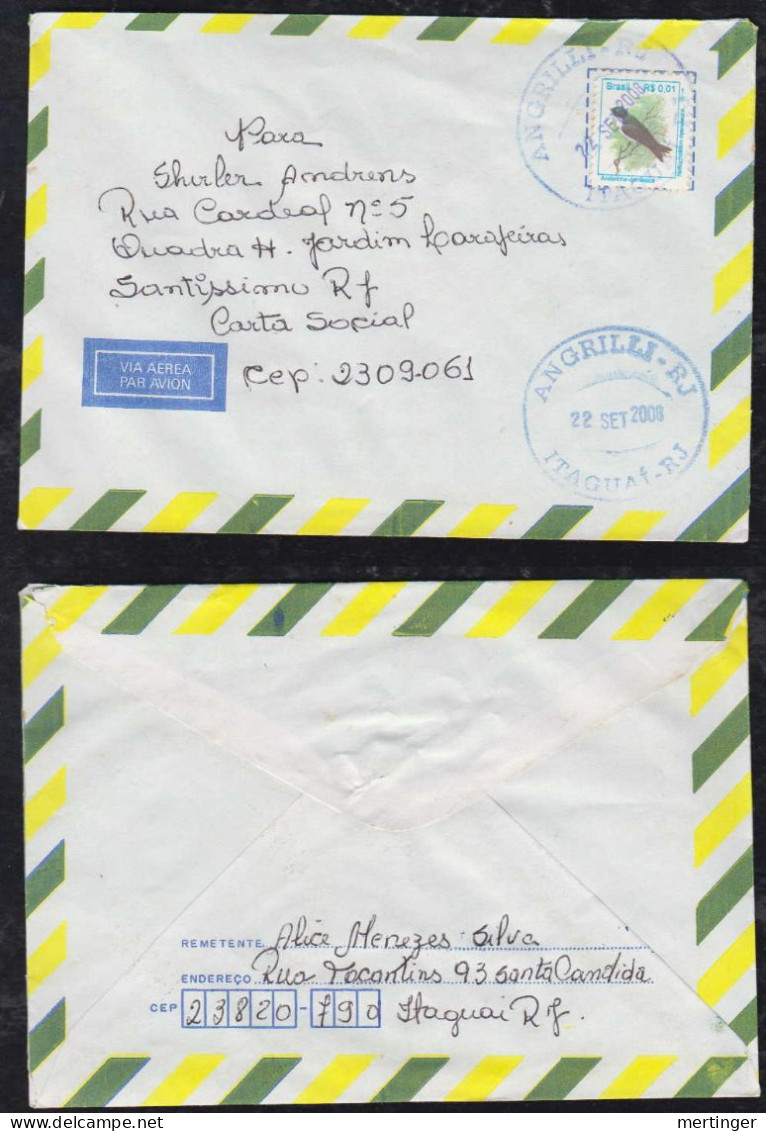 ANGRILLI-RJ
22 SET 2008
ITAGUAÍ
Brasil R$ 0,01
Para
Shirler Andrens
Rua Cardeal Nº 5
Quadra H. Jardim Larafeiras
Santíssimo RJ
Carta Social
VIA AEREA
PAR AVION
Cep: 2309-061
ANGRILLI-RJ
22 SET 2008
ITAGUAÍ-RJ
REMETENTE Alice Menezes Silva
ENDEREÇO Rua Tocantins 93 Santa Candida
CEP 23820-790 Itaguai RJ.
delcampe.net
mertinger